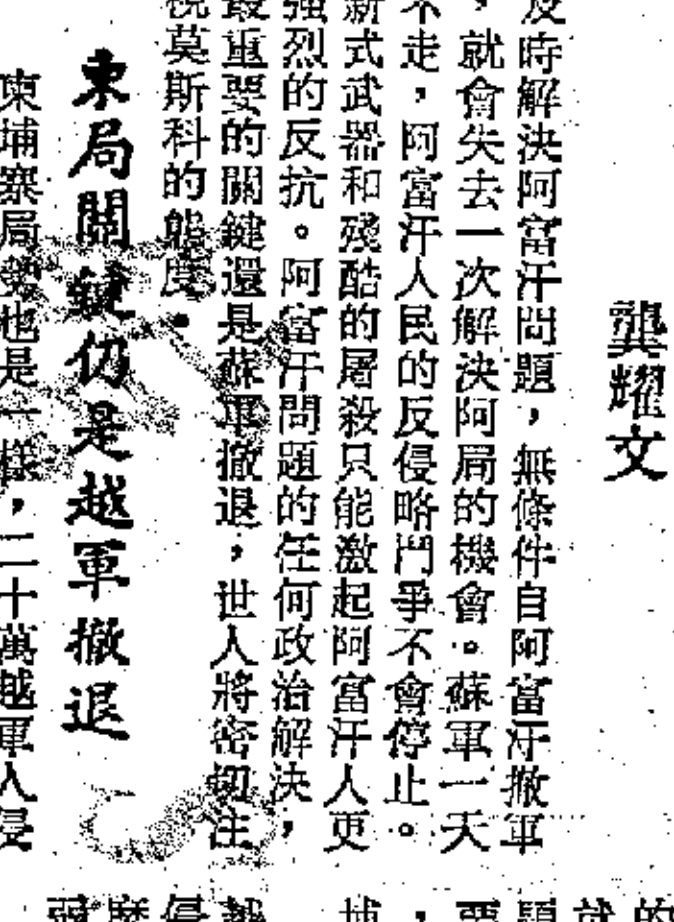 龔耀文
及時解決阿富汗問題，無條件自阿富汗撤軍
，就會失去一次解決阿局的機會。蘇軍一天
不走，阿富汗人民的反侵略鬥爭不會停止。
新式武器和殘酷的屠殺只能激起阿富汗人更
強烈的反抗。阿富汗問題的任何政治解決，
最重要的關鍵還是蘇軍撤退，世人將密切注
視莫斯科的態度。
柬局關鍵仍是越軍撤退
柬埔寨局勢也是一樣，二十萬越軍入侵